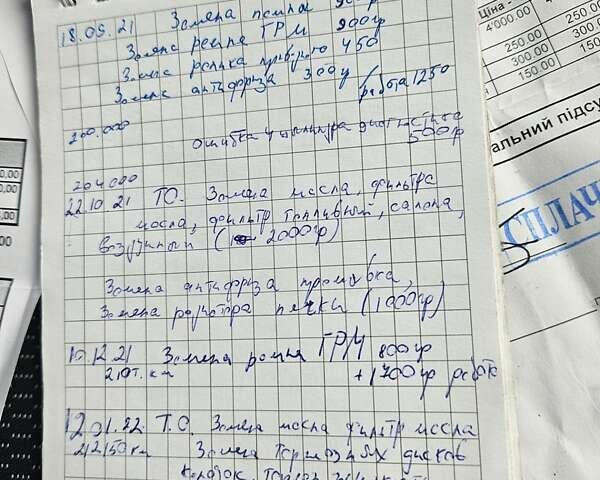 18.09.21 Замена помпа
Замена ремня ГРМ 900гр
Замена ролика приводного 450
Замена антифриза 300гр работа 1250
200.000
ошибка 4 цилиндра диагностика
500гр
204000
22.10.21 ТО. Замена масла, фильтра
масла, фильтр топливный, салона,
воздушный ( 2000гр)
Замена антифриза промывка,
Замена радиатора печки (1000гр)
10.12.21 Замена ремня ГРМ 800гр
210т. км + 1700гр работа
12.01.22 Т.О. Замена масла фильтр масла
212150км Замена тормозных дисков
колодок,
Ціна -
4'000.00
250.00
300.00
150.00
250.00
300.00
150,00
альний підсу
СПЛАЧ